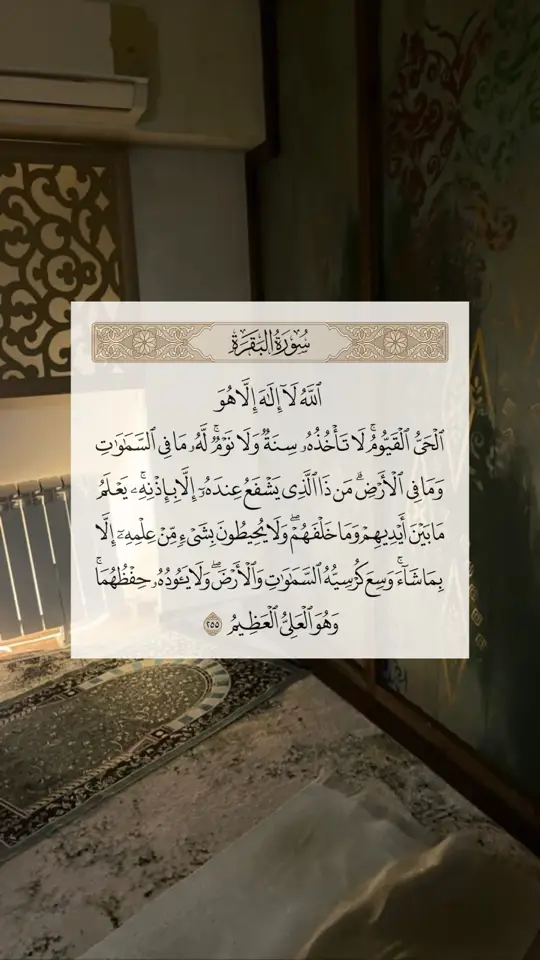 سُورَةُ البَقَرَةِ
ٱللَّهُ لَآ إِلَٰهَ إِلَّا هُوَ
ٱلۡحَيُّ ٱلۡقَيُّومُۚ لَا تَأۡخُذُهُۥ سِنَةٞ وَلَا نَوۡمٞۚ لَّهُۥ مَا فِي ٱلسَّمَٰوَٰتِ
وَمَا فِي ٱلۡأَرۡضِۗ مَن ذَا ٱلَّذِي يَشۡفَعُ عِندَهُۥٓ إِلَّا بِإِذۡنِهِۦۚ يَعۡلَمُ
مَا بَيۡنَ أَيۡدِيهِمۡ وَمَا خَلۡفَهُمۡۖ وَلَا يُحِيطُونَ بِشَيۡءٖ مِّنۡ عِلۡمِهِۦٓ إِلَّا
بِمَا شَآءَۚ وَسِعَ كُرۡسِيُّهُ ٱلسَّمَٰوَٰتِ وَٱلۡأَرۡضَۖ وَلَا يَـُٔودُهُۥ حِفۡظُهُمَاۚ
وَهُوَ ٱلۡعَلِيُّ ٱلۡعَظِيمُ ٢٥٥